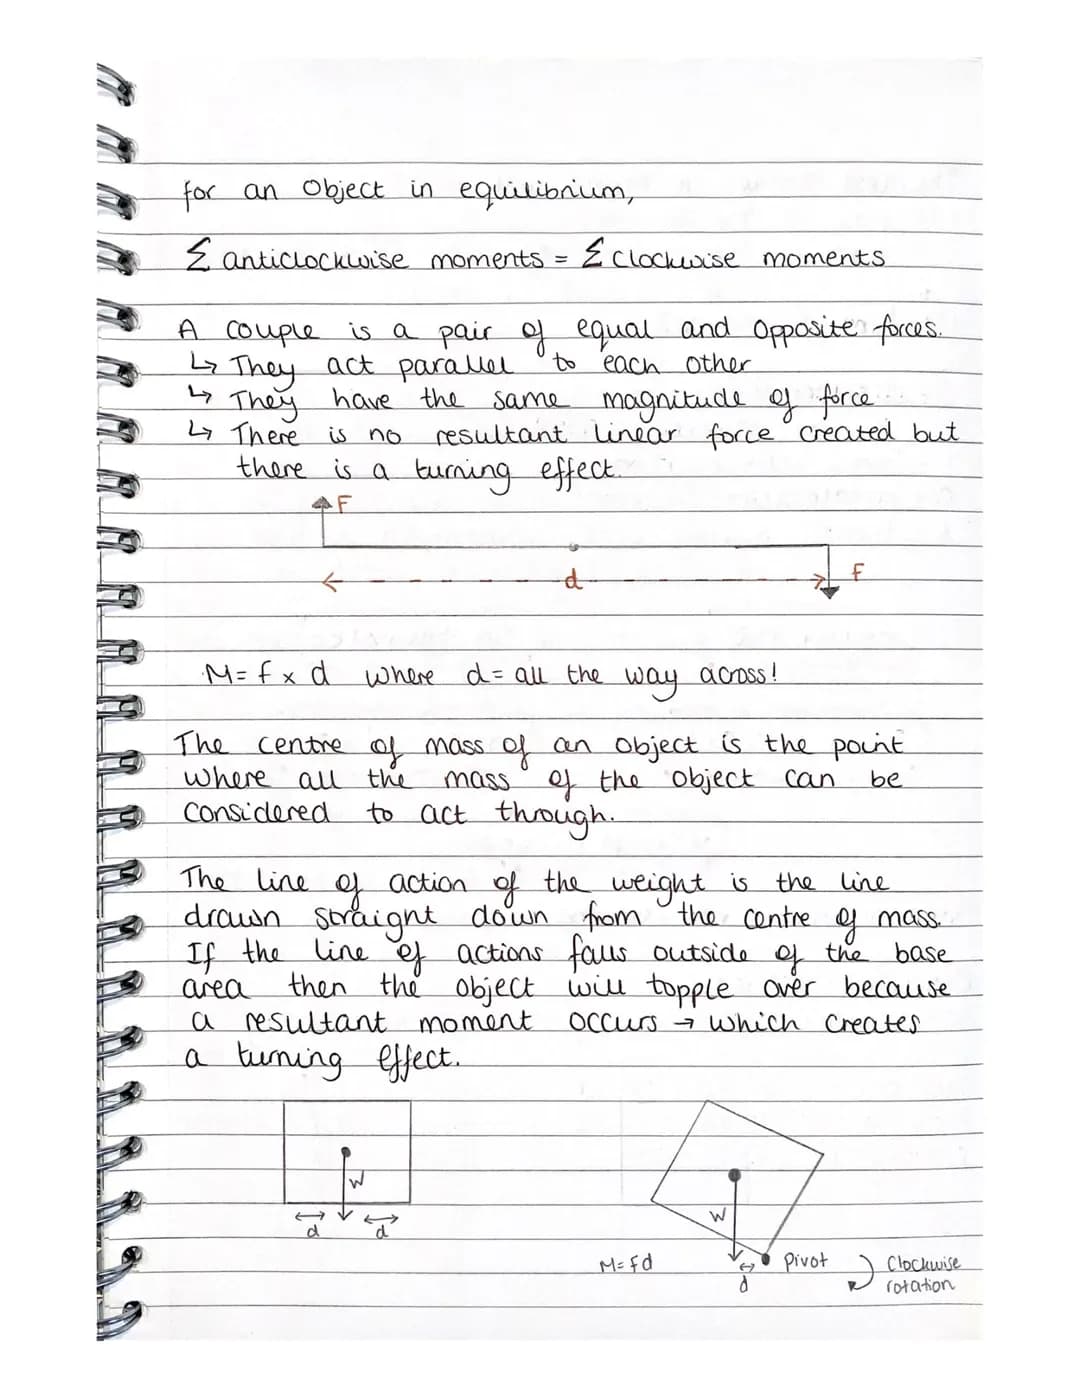 for an Object in equilibrium,
Σ anticlockwise moments = Σ Clockwise moments
A couple is a pair of equal and Opposite forces.
↳ They act parallel to each other
↳ They have the same magnitude of force
↳ There is no resultant linear force created but
there is a turning effect.
F
F
d
M= f x d where d= all the way across!
The centre of mass of an object is the point
where all the mass of the object can be
considered to act through.
The line of action of the weight is the line
drawn straight down from the centre of mass.
If the line of actions falls outside of the base
area then the object will topple over because
a resultant moment occurs → which creates
a turning effect.
W
d d
W
M= fd
d
Pivot
Clockwise
rotation